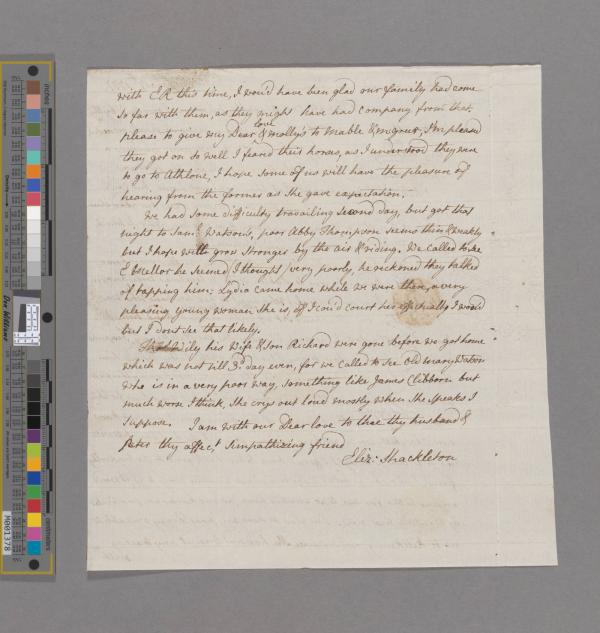 with ER this time, I woud have been glad our family had come
so far with them, as they might have had company from that,
please to give my Dear love & mollys to Mable & mgrue, I'm pleased
they got on so well I feard their horses, as I understood they were
to go to Athlone, I hope some of us will have the pleasure of
hearing from the former as she gave expectation,
We had some difficulty travailing second day, but got that
night to Sam.l Watsons, poor Abby Thompson seems thin & weakly
but I hope will grow stronger by the air & riding. We called to see
E bmellor he seemed I thought very poorly, he reckoned they talked
of tapping him; Lydia came home while we were there, a very
pleasing young woman she is, if I coud court her effectually I woud
but I dont see that likely.
Wily his Wife & Son Richard were gone before we got home
which was not till 3d. day even, for we called to see old mary Watson
who is in a very poor way, something like James Clibborn but
much worse I think, she crys out loud mostly when she speaks I
suppose. I am with our Dear love to thee thy husband &
Peter thy affec.t simpathizing friend
Eliz: Shackleton
inches
centimeters
Don Williams
M001378